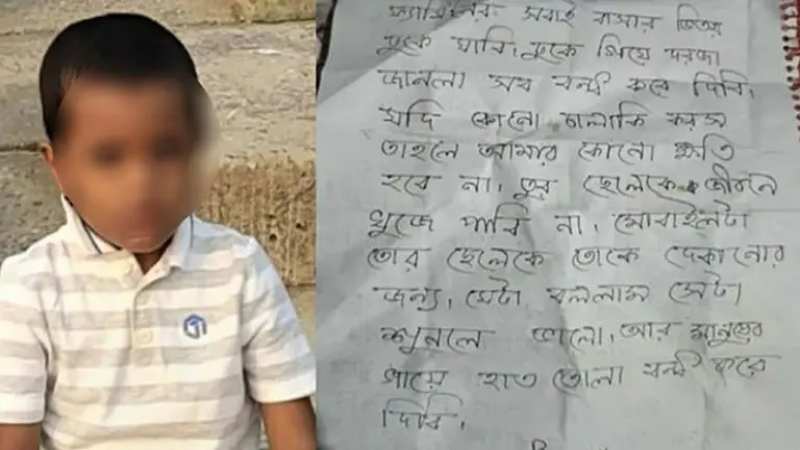 ফ্যামিলির সবাই বাসার ভিতর
ঢুকে যাবি, ঢুকে গিয়ে দরজা
জানলা সব বন্ধ করে দিবি,
যদি কোনো চালাকি করস
তাহলে আমার কোনো ক্ষতি
হবে না। তুর ছেলেকে জীবনে
খুজে পাবি না, মোবাইলটা
তোর ছেলেকে তোকে দেকানোর
জন্য, যেটা বললাম সেটা
শুনলে ভালো, আর মানুষের
গায়ে হাত তোলা বন্ধ করে
দিবি,